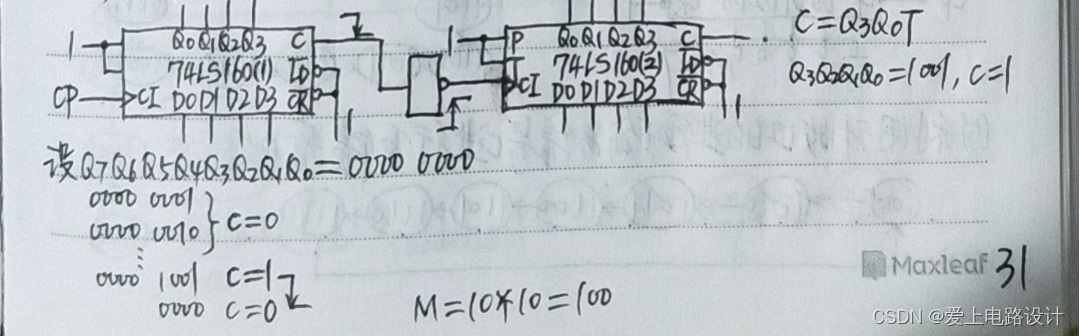 Q0 Q1 Q2 Q3 C
1
74LS160(1) LD
CP CI D0 D1 D2 D3 CR
1
1 P Q0 Q1 Q2 Q3 C
T 74LS160(2) LD
CI D0 D1 D2 D3 CR
1
C=Q3Q0T
Q3Q2Q1Q0=1001, C=1
设Q7Q6Q5Q4Q3Q2Q1Q0=0000 0000
0000 0001
0000 0010 } C=0
⋮
0000 1001 C=1
0000 C=0
M=10*10=100
Maxleaf 31
CSDN @爱上电路设计